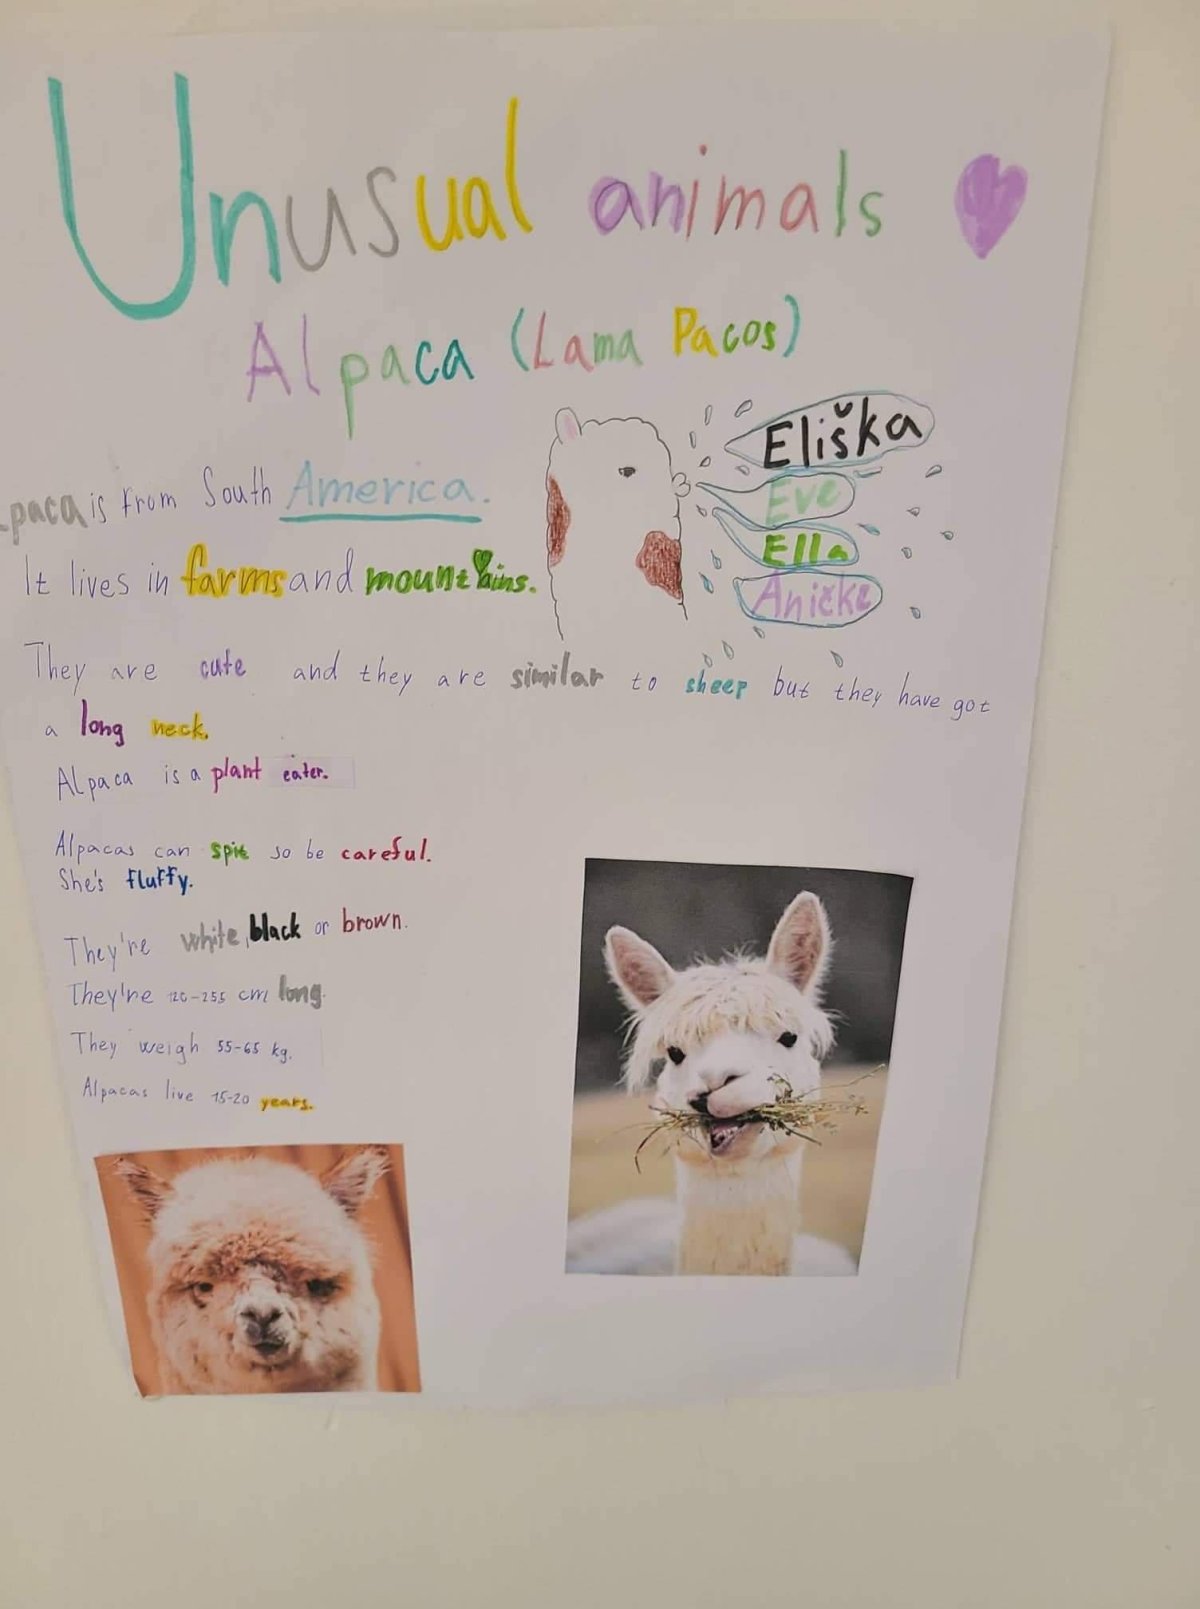 Unusual animals
Alpaca (Lama Pacos)
Eliška
Eve
Ella
Aničke
lpaca is from South America.
It lives in farms and mountains.
They are cute and they are similar to sheep but they have got
a long neck.
Alpaca is a plant eater.
Alpacas can spit so be careful.
She's fluffy.
They're white, black or brown.
They're cm long.
They weigh 55-65 kg.
Alpacas live 15-20 years.